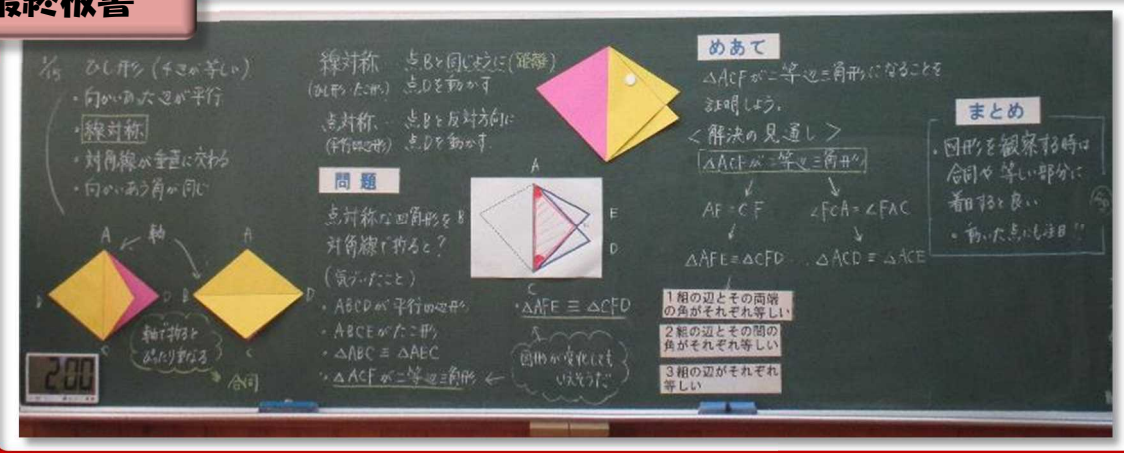 最終板書
ひし形 (4辺が等しい)
・向かいあった辺が平行
・線対称
・対角線が垂直に交わる
・向かいあう角が同じ
A
軸
A
B
D
B
D
C
C
軸で折ると
ぴったり重なる
合同
200
線対称 点Bと同じように(距離)
(ひし形・たこ形) 点Dを動かす
点対称 点Bと反対方向に
(平行四辺形) 点Dを動かす
問題
点対称な四角形を
対角線で折ると?
(気づいたこと)
・ABCDが平行四辺形
・ABCEがたこ形
・△ABC≡△AEC
・△ACFが二等辺三角形
A
B
E
D
C
・△AFE≡△CFD
図形が変化しても
いえそうだ
めあて
△ACFが二等辺三角形になることを
証明しよう。
<解決の見通し>
△ACFが二等辺三角形
AF=CF ∠FCA=∠FAC
△AFE≡△CFD … △ACD≡△ACE
1組の辺とその両端
の角がそれぞれ等しい
2組の辺とその間の
角がそれぞれ等しい
3組の辺がそれぞれ
等しい
まとめ
・図形を観察する時は
合同や等しい部分に
着目すると良い
・動いた点にも注目!!